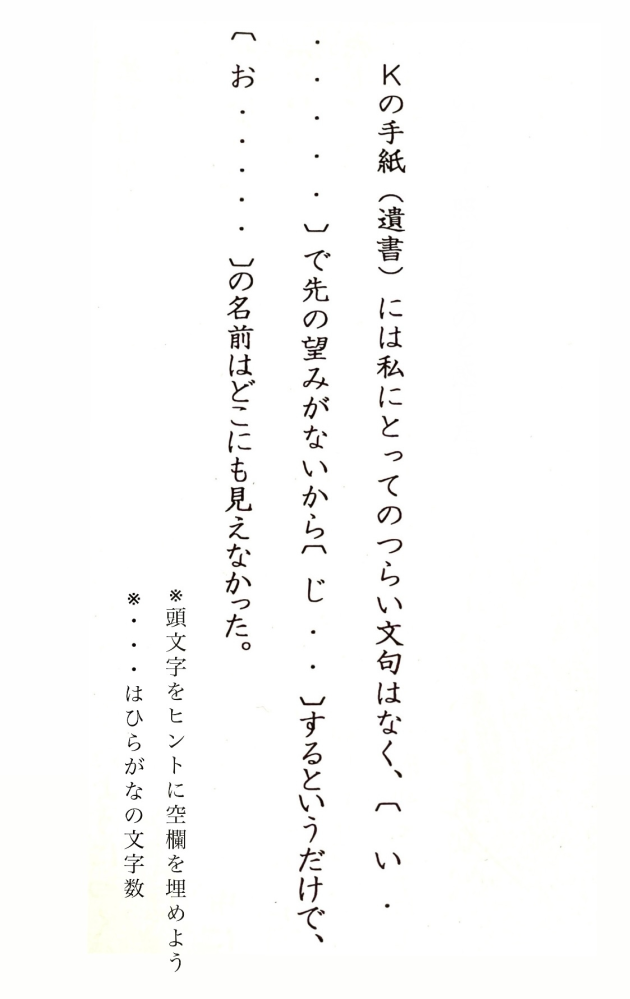 Kの手紙（遺書）には私にとってのつらい文句はなく、〔 い ・
・ ・ ・ ・ ・ 〕で先の望みがないから〔 じ ・ ・ 〕するというだけで、
〔 お ・ ・ ・ ・ ・ 〕の名前はどこにも見えなかった。
※頭文字をヒントに空欄を埋めよう
※・・・はひらがなの文字数